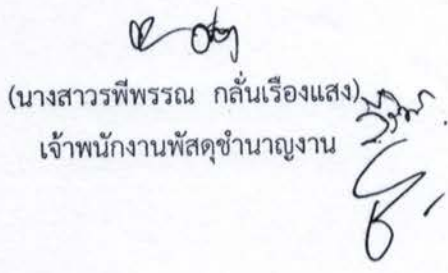 (นางสาวรพีพรรณ กลั่นเรืองแสง)
เจ้าพนักงานพัสดุชำนาญงาน